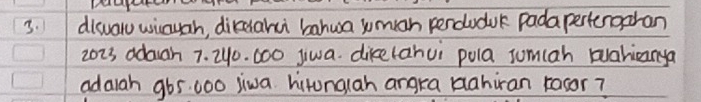 3. disuatu wilayah, diketahui bahwa jumlah penduduk pada pertengahan
2023 adalah 7.240.000 jiwa. diketahui pula jumlah kelahirannya
adalah 965.000 jiwa hitunglah angka kelahiran kasar?